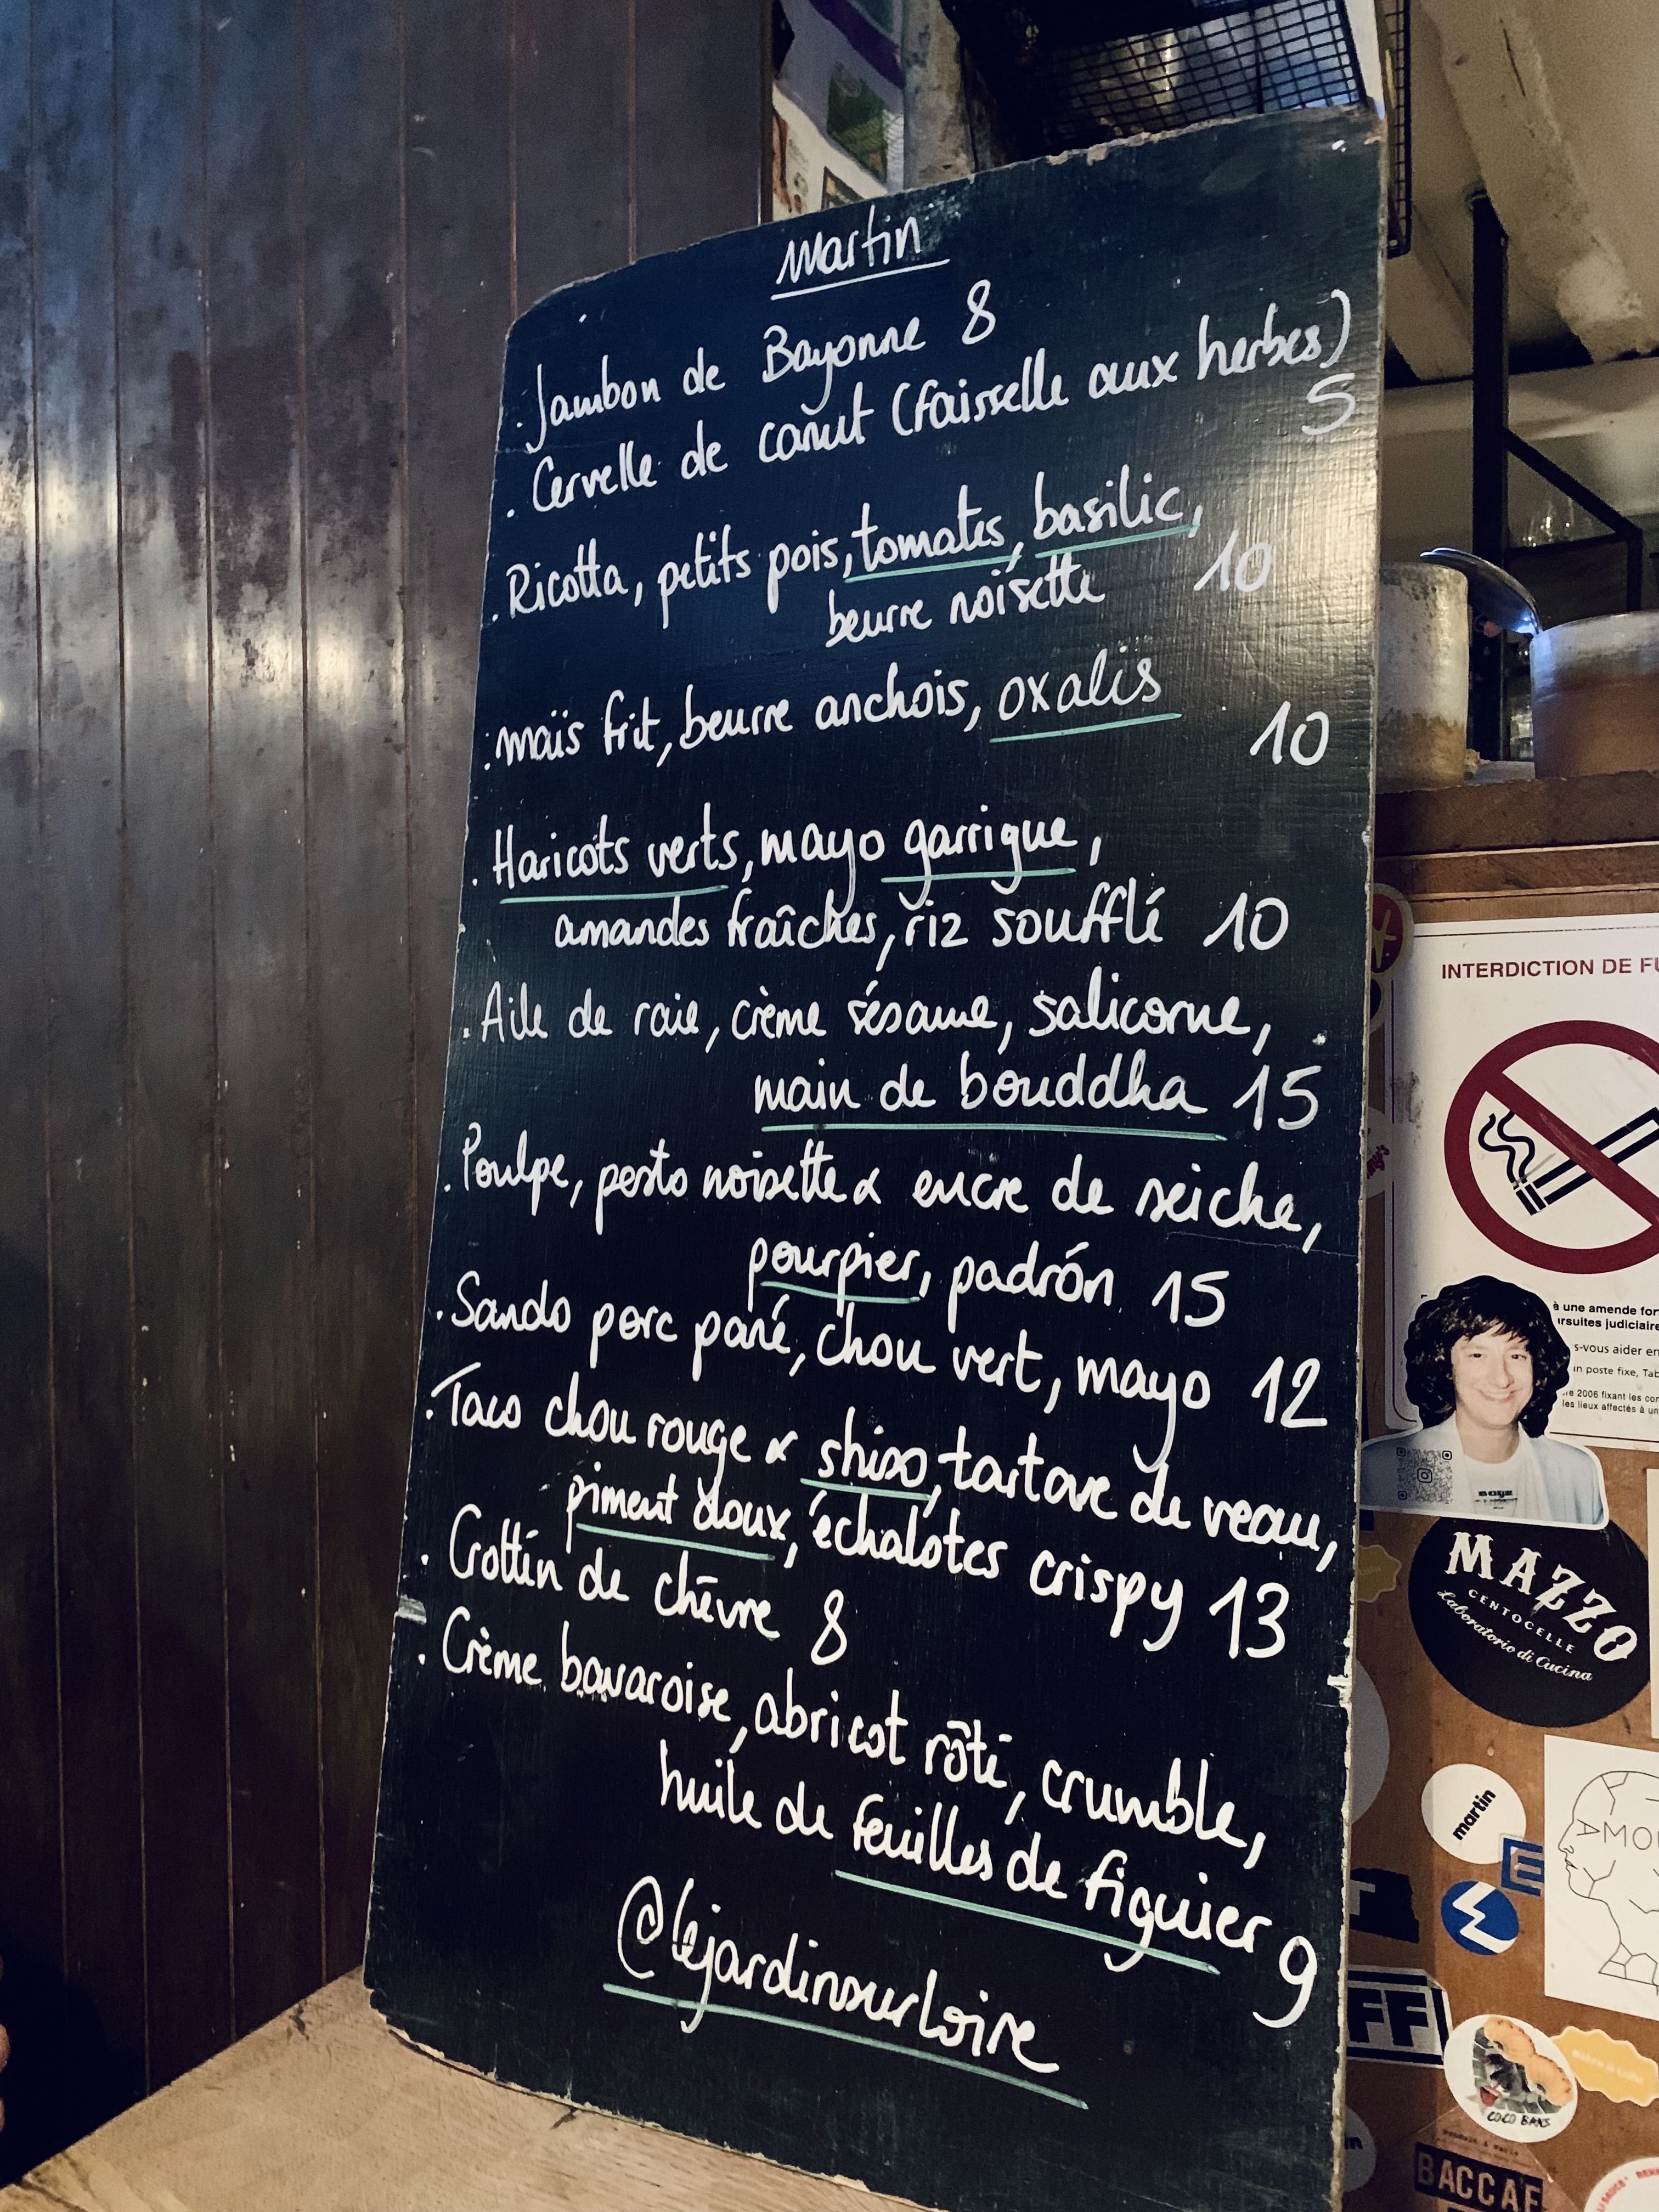 Martin
. Jambon de Bayonne 8
. Cervelle de canut (faisselle aux herbes)
5
. Ricotta, petits pois, tomates, basilic,
beurre noisette 10
. maïs frit, beurre anchois, oxalis
10
. Haricots verts, mayo garrigue,
amandes fraîches, riz soufflé 10
. Aile de raie, crème sésame, salicorne,
main de bouddha 15
. Poulpe, pesto noisette & encre de seiche,
pourpier, padrón 15
. Sando porc pané, chou vert, mayo 12
. Taco chou rouge & shiso, tartare de veau,
piment doux, échalotes crispy 13
. Crottin de chèvre 8
. Crème bavaroise, abricot rôti, crumble,
huile de feuilles de figuier 9
@lejardinsurloire
INTERDICTION DE FU
à une amende for
ursuites judiciaire
s-vous aider en
in poste fixe, Tab
re 2006 fixant les con
les lieux affectés à un
MAZZO
CENTOCELLE
Laboratorio di Cucina
martin
AMOU
E
FF
COCO BANS
BACCAF